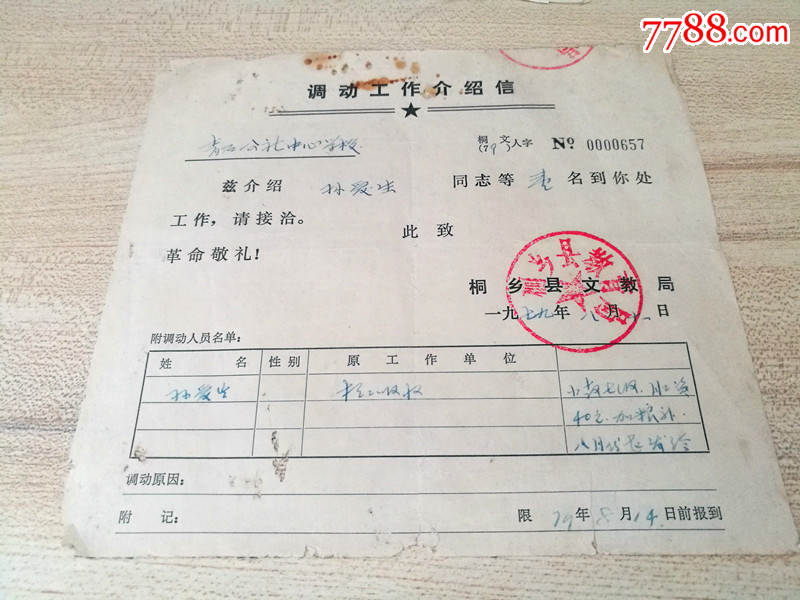 7788.com
调动工作介绍信
公社中心学校
桐文
(79)人字 № 0000657
兹介绍 孙爱生 同志等 壹 名到你处
工作，请接洽。
此致
革命敬礼！
桐乡县文教局
一九七九年八月 日
附调动人员名单：
姓名 性别 原工作单位
孙爱生 小教七级 月工资
40元 加粮补
八月份起发给
调动原因：
附记： 限79年8月14日前报到